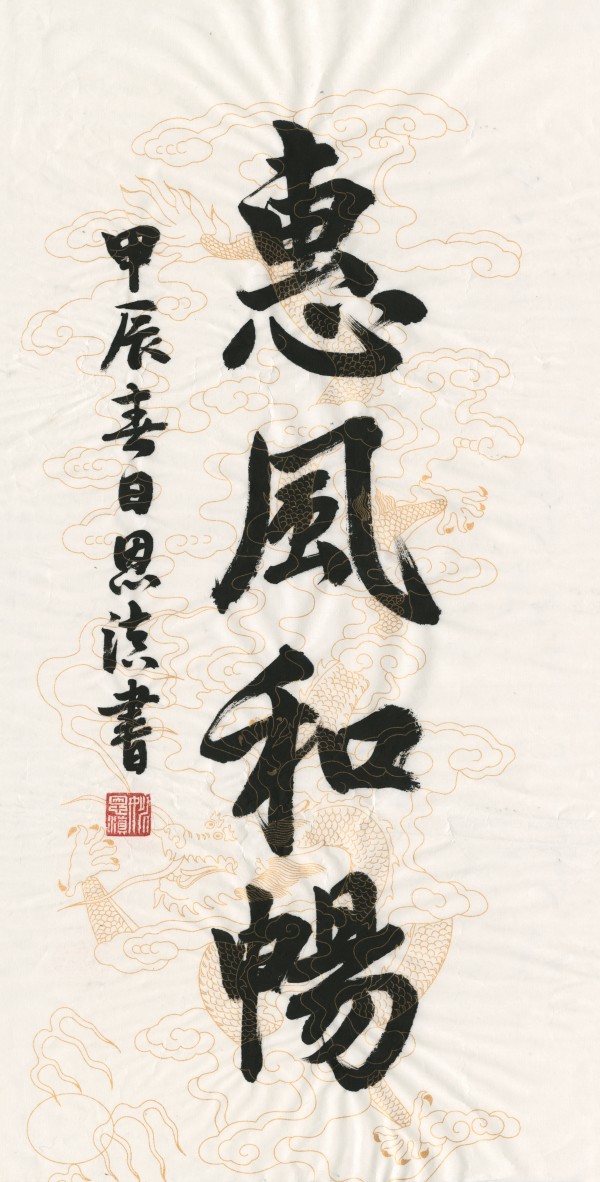 惠風和暢
甲辰春日思書